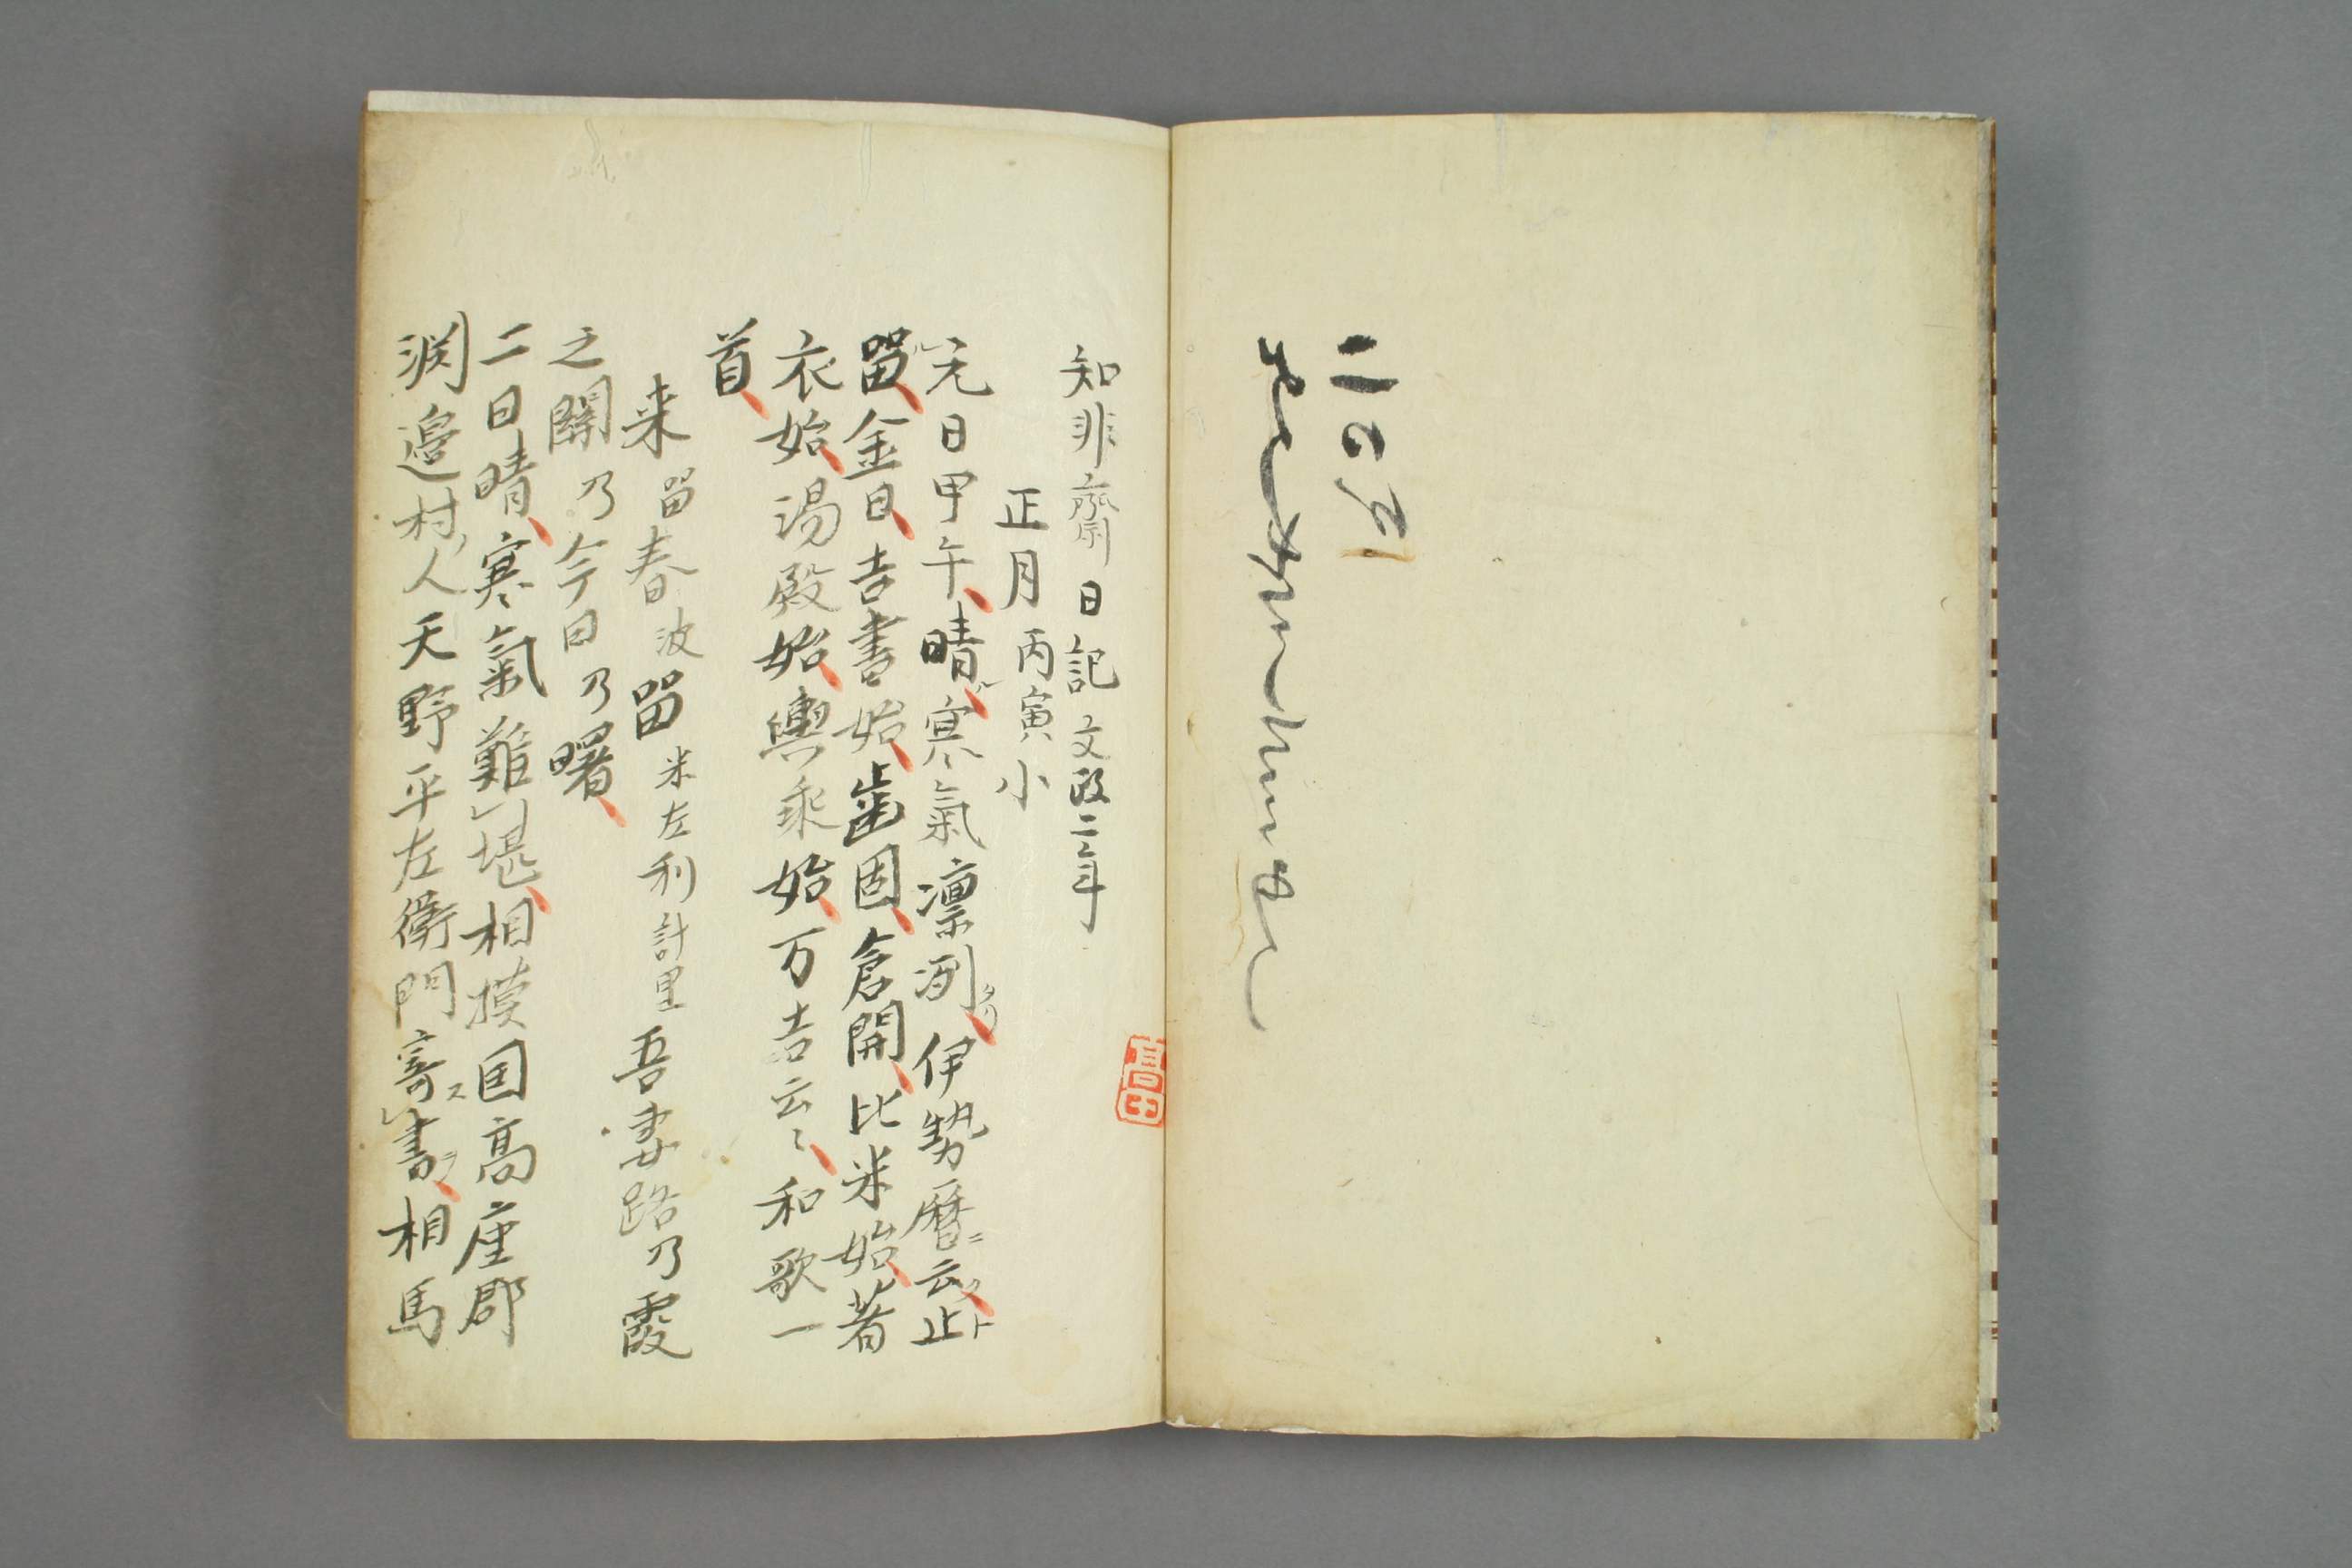 知非齋日記 文政二年
正月 丙寅小
元日甲午晴寒氣凛冽伊勢暦云止
留金日吉書始歯固倉開比米始着
衣始湯殿始輿乗始万吉云々和歌一
首
来留春波留米左利計里吾妻路乃霞
之關乃今日乃曙
二日晴寒氣難堪相摸国高座郡
渕邉村人天野平左衛門寄書相馬
高田